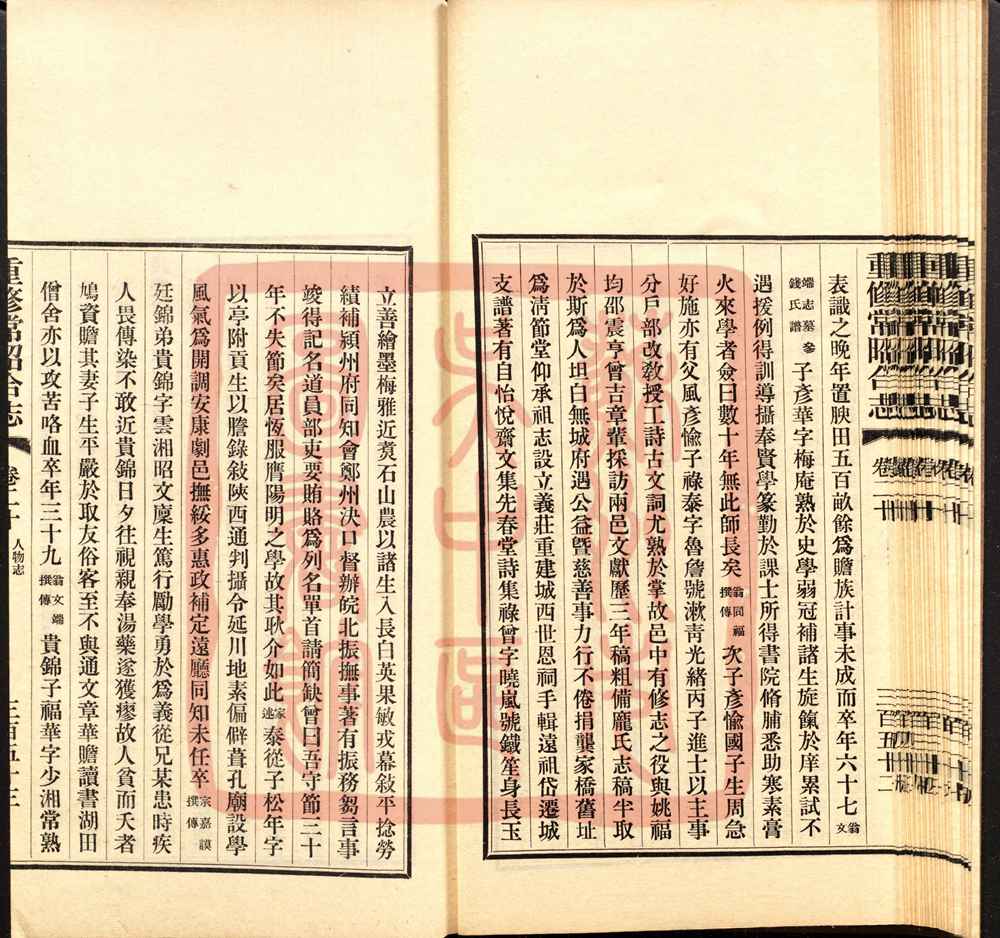 表識之晚年置腴田五百畝餘爲贍族計事未成而卒年六十七翁文
端志墓參錢氏譜子彥華字梅庵熟於史學弱冠補諸生旋餼於庠累試不
遇援例得訓導攝奉賢學篆勤於課士所得書院脩脯悉助寒素膏
火來學者僉曰數十年無此師長矣翁同福撰傳次子彥愉國子生周急
好施亦有父風彥愉子祿泰字魯詹號漱靑光緒丙子進士以主事
分戶部改敎授工詩古文詞尤熟於掌故邑中有修志之役與姚福
均邵震亨曾吉章輩採訪兩邑文獻歷三年稿粗備龐氏志稿半取
於斯爲人坦白無城府遇公益曁慈善事力行不倦捐龔家橋舊址
爲淸節堂仰承祖志設立義莊重建城西世恩祠手輯遠祖岱遷城
支譜著有自怡悅齋文集先春堂詩集祿曾字曉嵐號鐵笙身長玉
立善繪墨梅雅近煑石山農以諸生入長白英果敏戎幕敍平捻勞
績補潁州府同知會鄭州決口督辦皖北振撫事著有振務芻言事
竣得記名道員部吏要賄賂爲列名單首請簡缺曾曰吾守節三十
年不失節矣居恆服膺陽明之學故其耿介如此家述泰從子松年字
以亭附貢生以謄錄敍陝西通判攝令延川地素偏僻葺孔廟設學
風氣爲開調安康劇邑撫綏多惠政補定遠廳同知未任卒宗嘉謨撰傳
廷錦弟貴錦字雲湘昭文廩生篤行勵學勇於爲義從兄某患時疾
人畏傳染不敢近貴錦日夕往視親奉湯藥遂獲瘳故人貧而夭者
鳩資贍其妻子生平嚴於取友俗客至不與通文章華贍讀書湖田
僧舍亦以攻苦咯血卒年三十九翁文端撰傳貴錦子福華字少湘常熟
重修常昭合志
卷二十
人物志